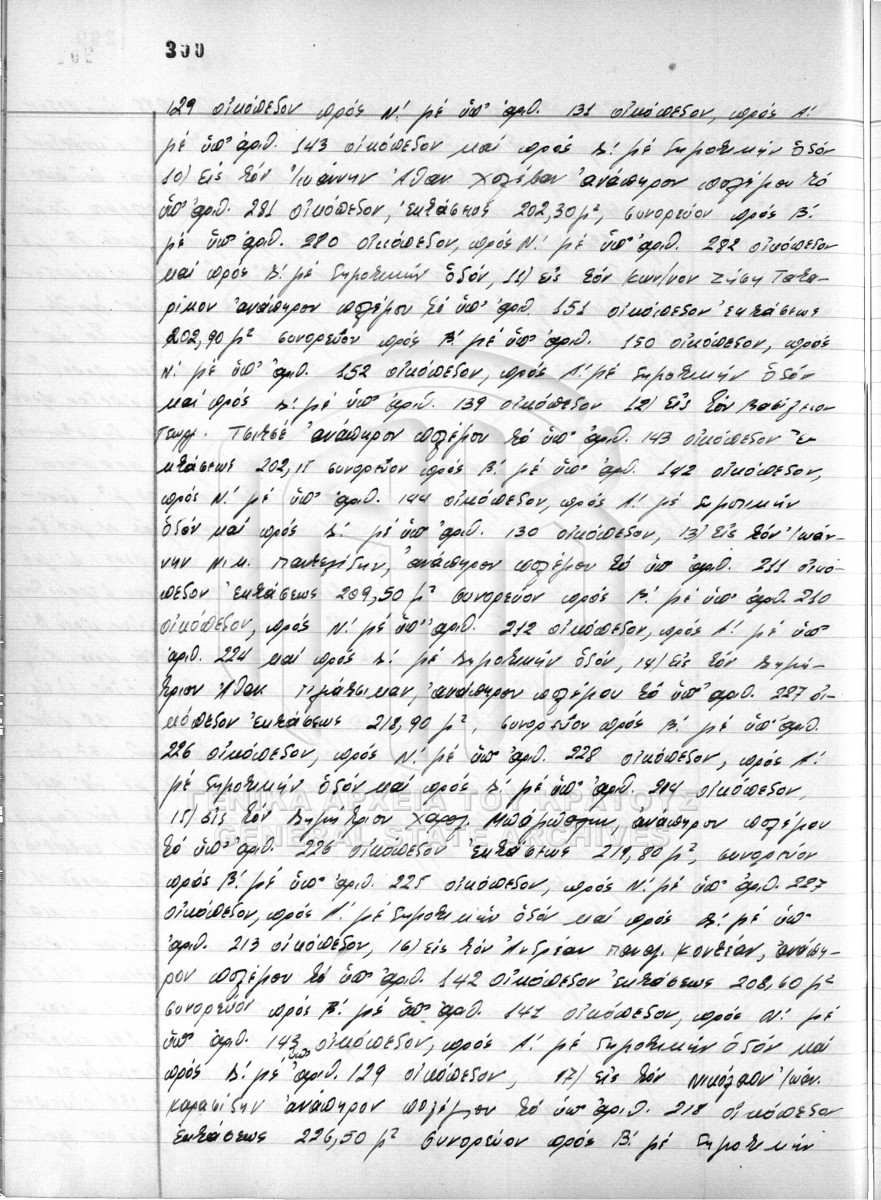 300
129 οἰκόπεδον πρός Ν! μέ ὑπ' ἀριθ. 131 οἰκόπεδον, πρός Α!
μέ ὑπ' ἀριθ. 143 οἰκόπεδον καί πρός Δ! μέ δημοτικήν ὁδόν
10) Εἰς τόν Ἰωάννην Ἀθαν. ἀνάπηρον πολέμου τό
ὑπ' ἀριθ. 281 οἰκόπεδον, ἐκτάσεως 202,30 μ², συνορεῦον πρός Β!
μέ ὑπ' ἀριθ. 280 οἰκόπεδον, πρός Ν! μέ ὑπ' ἀριθ. 282 οἰκόπεδον
καί πρός Δ! μέ δημοτικήν ὁδόν, 11) εἰς τόν Κων/νον Ζήση Τατα-
ρίκον ἀνάπηρον πολέμου τό ὑπ' ἀριθ. 151 οἰκόπεδον ἐκτάσεως
202,90 μ² συνορεῦον πρός Β! μέ ὑπ' ἀριθ. 150 οἰκόπεδον, πρός
Ν! μέ ὑπ' ἀριθ. 152 οἰκόπεδον, πρός Α! μέ δημοτικήν ὁδόν
καί πρός Δ! μέ ὑπ' ἀριθ. 139 οἰκόπεδον 12) εἰς τόν Βασίλειον
Γεωργ. Τσιτσέ ἀνάπηρον πολέμου τό ὑπ' ἀριθ. 143 οἰκόπεδον ἐ-
κτάσεως 202,15 συνορεῦον πρός Β! μέ ὑπ' ἀριθ. 142 οἰκόπεδον,
πρός Ν! μέ ὑπ' ἀριθ. 144 οἰκόπεδον, πρός Α! μέ δημοτικήν
ὁδόν καί πρός Δ! μέ ὑπ' ἀριθ. 130 οἰκόπεδον, 13) Εἰς τόν Ἰωάν-
νην Νικ. Παντελίδην, ἀνάπηρον πολέμου τό ὑπ' ἀριθ. 211 οἰκό-
πεδον ἐκτάσεως 209,50 μ² συνορεῦον πρός Β! μέ ὑπ' ἀριθ. 210
οἰκόπεδον, πρός Ν! μέ ὑπ' ἀριθ. 212 οἰκόπεδον, πρός Α! μέ ὑπ'
ἀριθ. 224 καί πρός Δ! μέ δημοτικήν ὁδόν, 14) Εἰς τόν Δημή-
τριον Ἀθαν. ἀνάπηρον πολέμου τό ὑπ' ἀριθ. 227 οἰ-
κόπεδον ἐκτάσεως 218,90 μ², συνορεῦον πρός Β! μέ ὑπ' ἀριθ.
226 οἰκόπεδον, πρός Ν! μέ ὑπ' ἀριθ. 228 οἰκόπεδον, πρός Α!
μέ δημοτικήν ὁδόν καί πρός Δ! μέ ὑπ' ἀριθ. 214 οἰκόπεδον,
15) εἰς τόν Δημήτριον Χαραλ. ἀνάπηρον πολέμου
τό ὑπ' ἀριθ. 226 οἰκόπεδον ἐκτάσεως 219,80 μ², συνορεῦον
πρός Β! μέ ὑπ' ἀριθ. 225 οἰκόπεδον, πρός Ν! μέ ὑπ' ἀριθ. 227
οἰκόπεδον, πρός Α! μέ δημοτικήν ὁδόν καί πρός Δ! μέ ὑπ'
ἀριθ. 213 οἰκόπεδον, 16) εἰς τόν Ἀνδρέαν Παναγ. Κοντεάν, ἀνάπη-
ρον πολέμου τό ὑπ' ἀριθ. 142 οἰκόπεδον ἐκτάσεως 208,60 μ²
συνορεῦον πρός Β! μέ ὑπ' ἀριθ. 141 οἰκόπεδον, πρός Ν! μέ
ὑπ' ἀριθ. 143 οἰκόπεδον, πρός Α! μέ δημοτικήν ὁδόν καί
πρός Δ! μέ ὑπ' ἀριθ. 129 οἰκόπεδον, 17) εἰς τόν Νικόλαον Ἰωάν.
Καρασίδην ἀνάπηρον πολέμου τό ὑπ' ἀριθ. 218 οἰκόπεδον
ἐκτάσεως 226,50 μ² συνορεῦον πρός Β! μέ δημοτικήν
ΓΕΝΙΚΑ ΑΡΧΕΙΑ ΤΟΥ ΚΡΑΤΟΥΣ
GENERAL STATE ARCHIVES